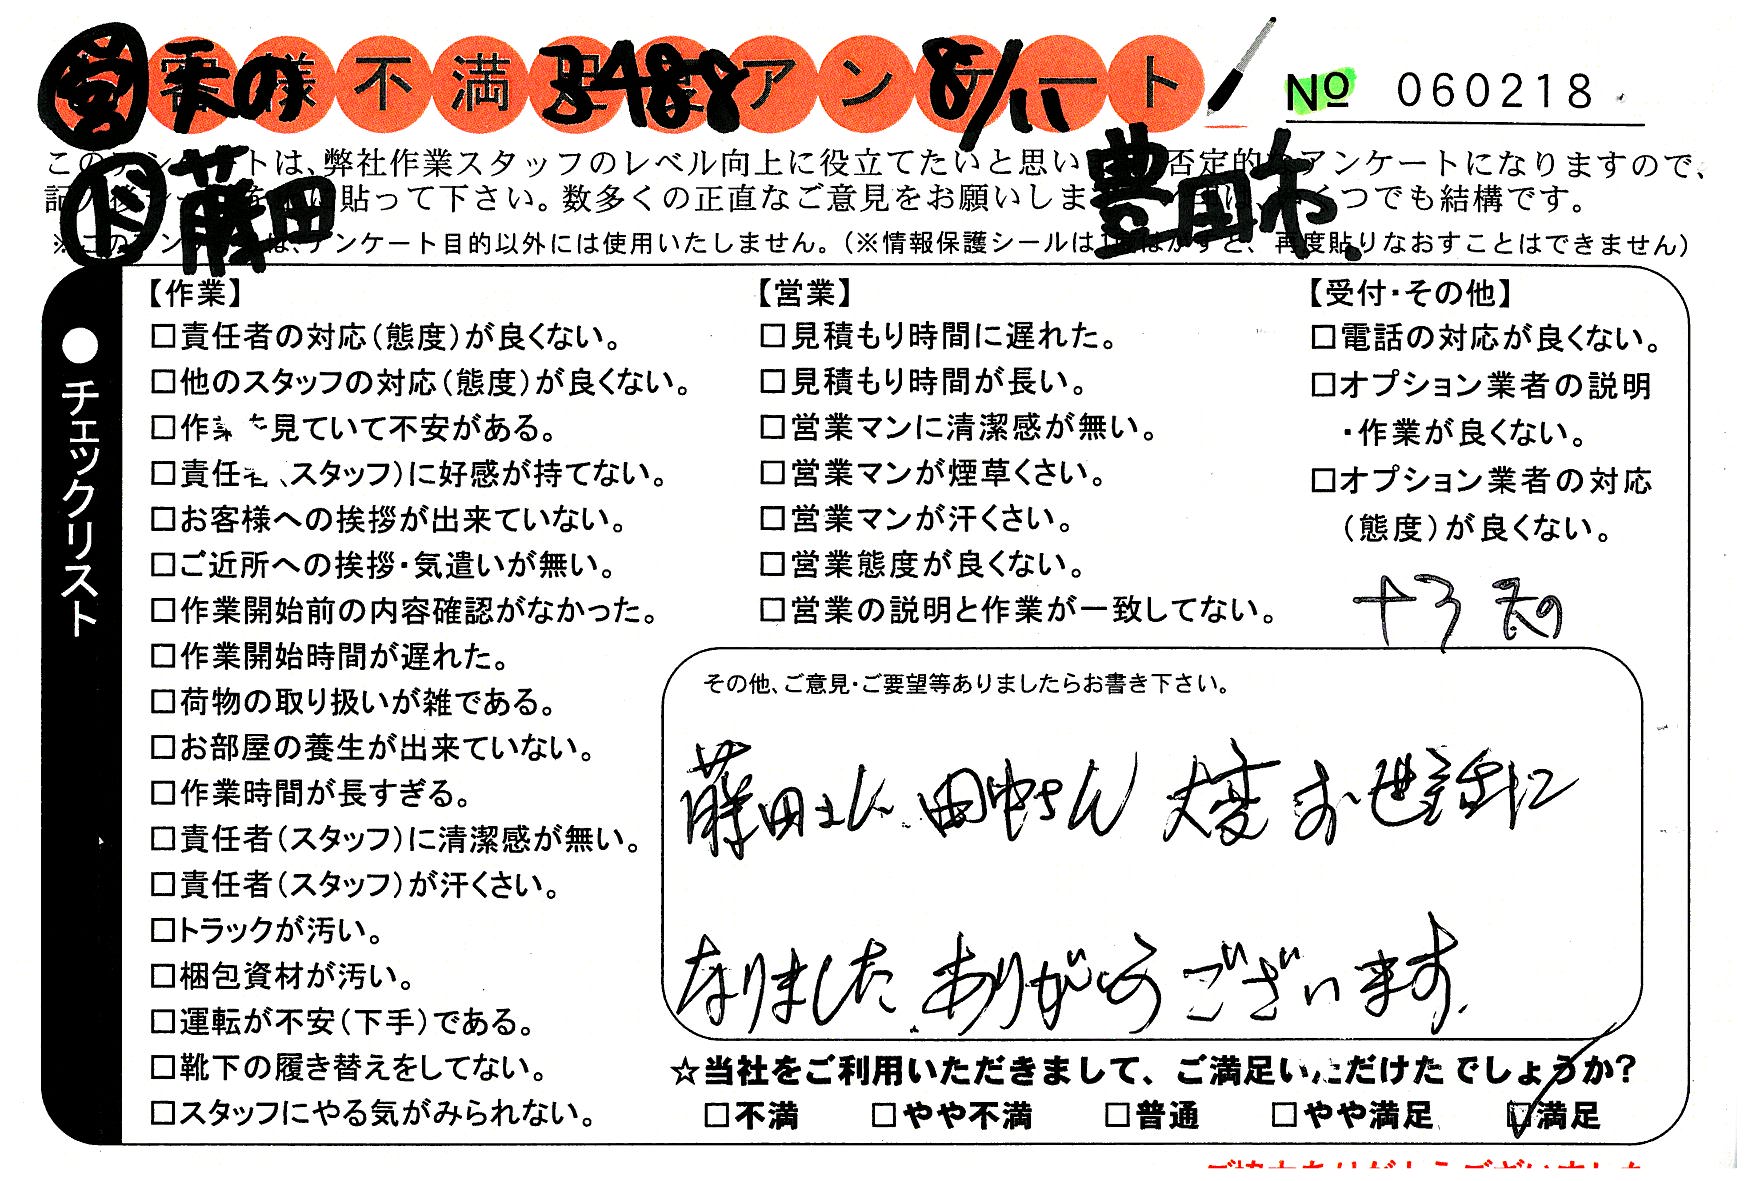 営 天の 3488 8/11
お客様不満足度アンケート
No 060218
ド 藤田 豊田市
このアンケートは、弊社作業スタッフのレベル向上に役立てたいと思い 否定的なアンケートになりますので、
貼って下さい。数多くの正直なご意見をお願いしま くつでも結構です。
※このアンケートは、アンケート目的以外には使用いたしません。(※情報保護シールは1度はがすと、再度貼りなおすことはできません)
●チェックリスト
【作業】
□責任者の対応(態度)が良くない。
□他のスタッフの対応(態度)が良くない。
□作業を見ていて不安がある。
□責任者、スタッフ)に好感が持てない。
□お客様への挨拶が出来ていない。
□ご近所への挨拶・気遣いが無い。
□作業開始前の内容確認がなかった。
□作業開始時間が遅れた。
□荷物の取り扱いが雑である。
□お部屋の養生が出来ていない。
□作業時間が長すぎる。
□責任者(スタッフ)に清潔感が無い。
□責任者(スタッフ)が汗くさい。
□トラックが汚い。
□梱包資材が汚い。
□運転が不安(下手)である。
□靴下の履き替えをしてない。
□スタッフにやる気がみられない。
【営業】
□見積もり時間に遅れた。
□見積もり時間が長い。
□営業マンに清潔感が無い。
□営業マンが煙草くさい。
□営業マンが汗くさい。
□営業態度が良くない。
□営業の説明と作業が一致してない。
【受付・その他】
□電話の対応が良くない。
□オプション業者の説明
・作業が良くない。
□オプション業者の対応
(態度)が良くない。
その他、ご意見・ご要望等ありましたらお書き下さい。
藤田さん 田中さん 大変お世話に
なりました ありがとうございます.
☆当社をご利用いただきまして、ご満足いただけたでしょうか?
□不満 □やや不満 □普通 □やや満足 ☑満足
ご協力ありがとうございました